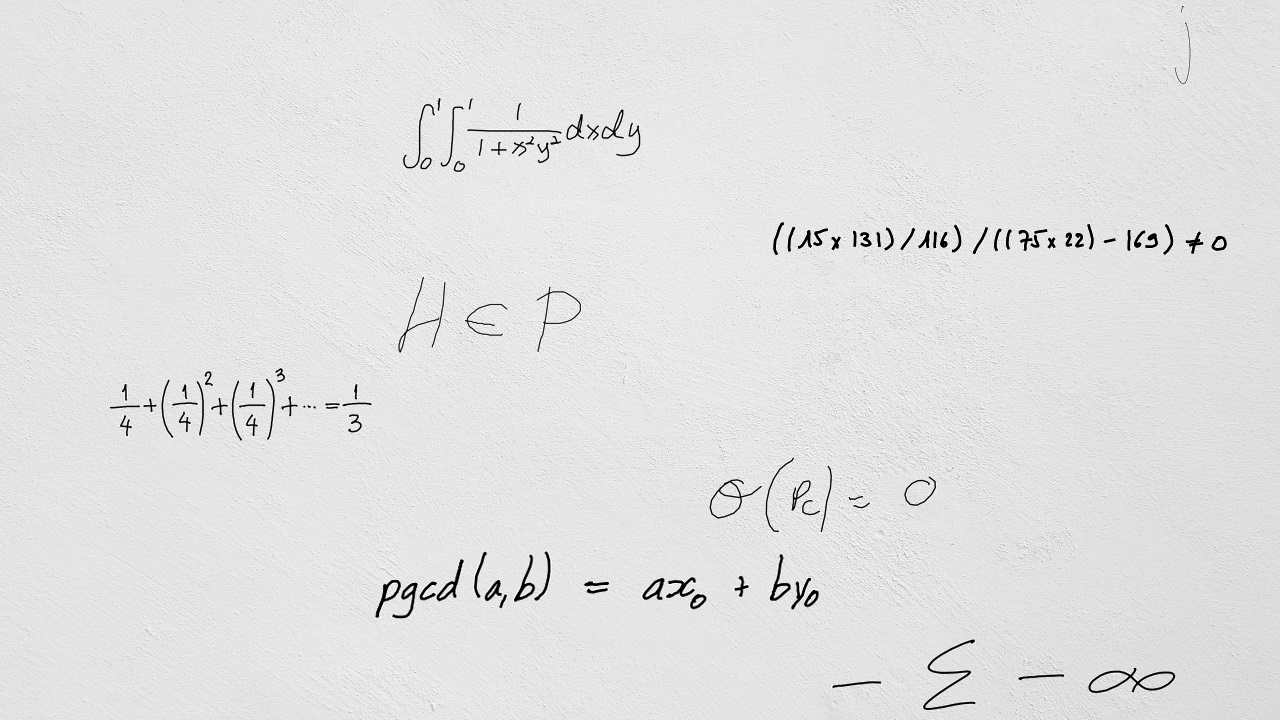 j
∫₀¹∫₀¹ 1/(1+x²y²) dxdy
((15x131)/116)/((75x22)-169)≠0
H∈P
1/4+(1/4)²+(1/4)³+...=1/3
θ(Pc)=0
pgcd(a,b) = ax₀ + by₀
- Σ - ∞